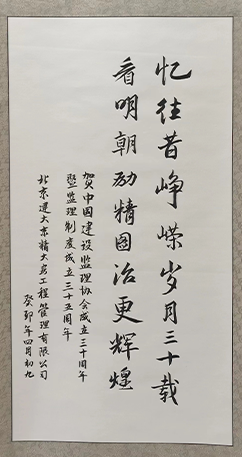 忆往昔峥嵘岁月三十载
看明朝励精图治更辉煌
贺中国建设监理协会成立三十周年
暨监理制度成立三十五周年
北京建大京精大房工程管理有限公司
癸卯年四月初九